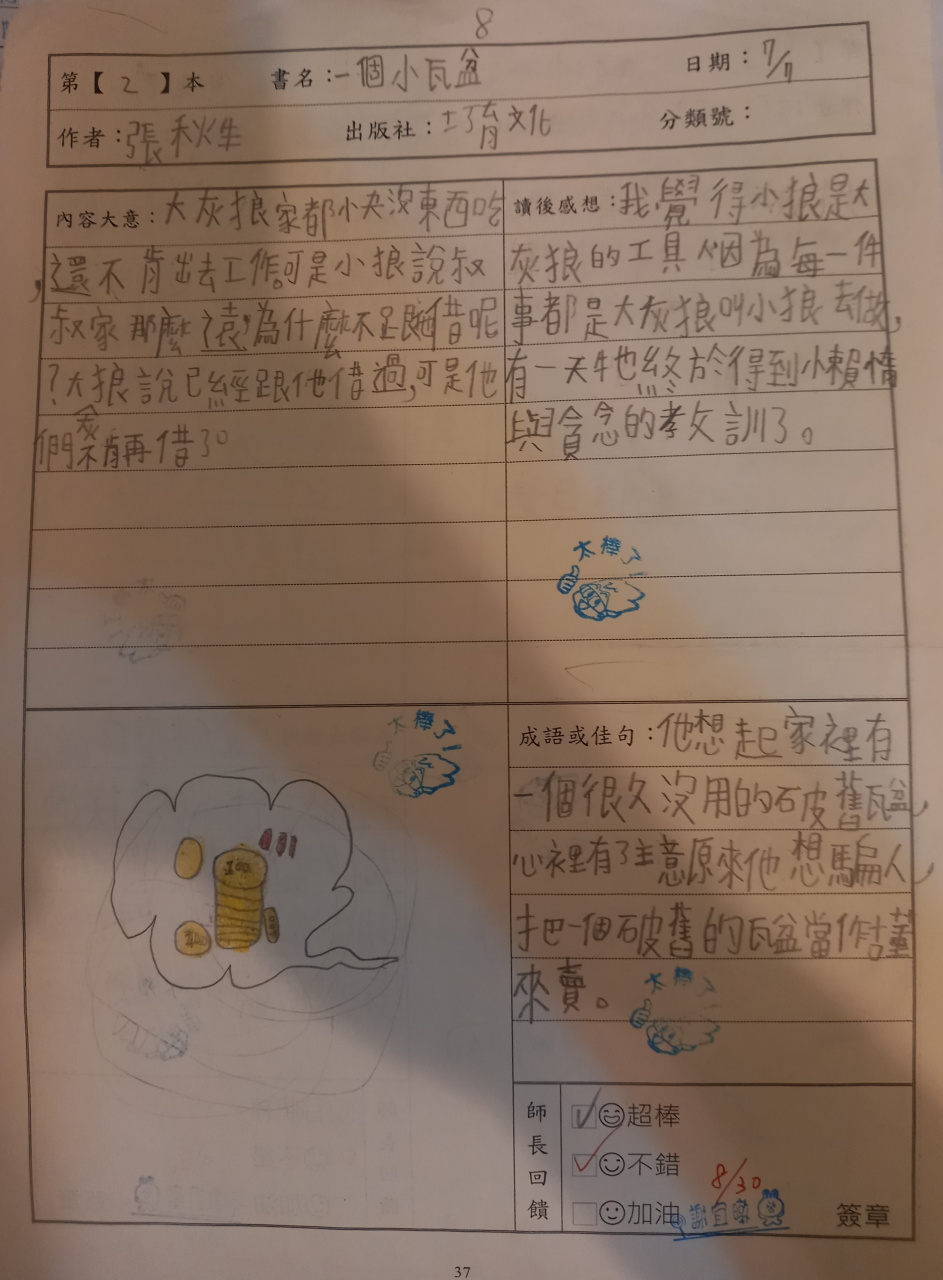 8
第【 2 】本 書名：一個小瓦盆 日期：7/7
作者：張秋生 出版社： 文化 分類號：
內容大意：大灰狼家都小夬沒東西吃
，還不肯出去工作可是小狼說叔
叔家那麼遠，為什麼不足跟他借呢
？大狼說已經跟他借過，可是他
們不肯再借了。
讀後感想：我覺得小狼是大
灰狼的工具人因為每一件
事都是大灰狼叫小狼去做，
有一天牠終於得到小懶惰
與貪念的教訓了。
太棒了
太棒了
成語或佳句：他想起家裡有
一個很久沒用的破舊瓦盆，
心裡有了主意原來他想騙人，
才把一個破舊的瓦盆當作古董
來賣。
太棒了
100
師長回饋
超棒
不錯
加油
8/30
簽章
37